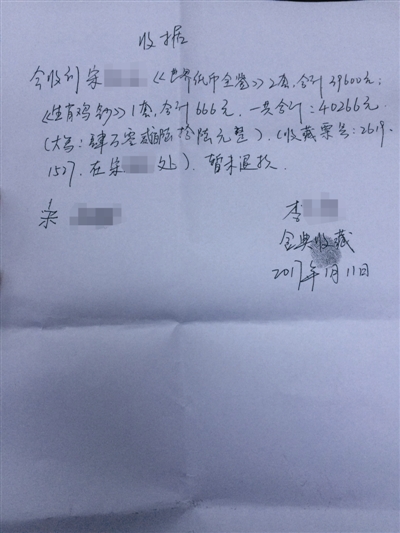 收据
今收到宋 《世界纸币全鉴》2套,合计39600元;
《生肖鸡钞》1套,合计666元,一共合计:40266元.
(大写:肆万零贰佰陆拾陆元整).(收藏票号:2619
1527.在宋 处).暂未退款.
宋 李
金典收藏
2017年1月11日